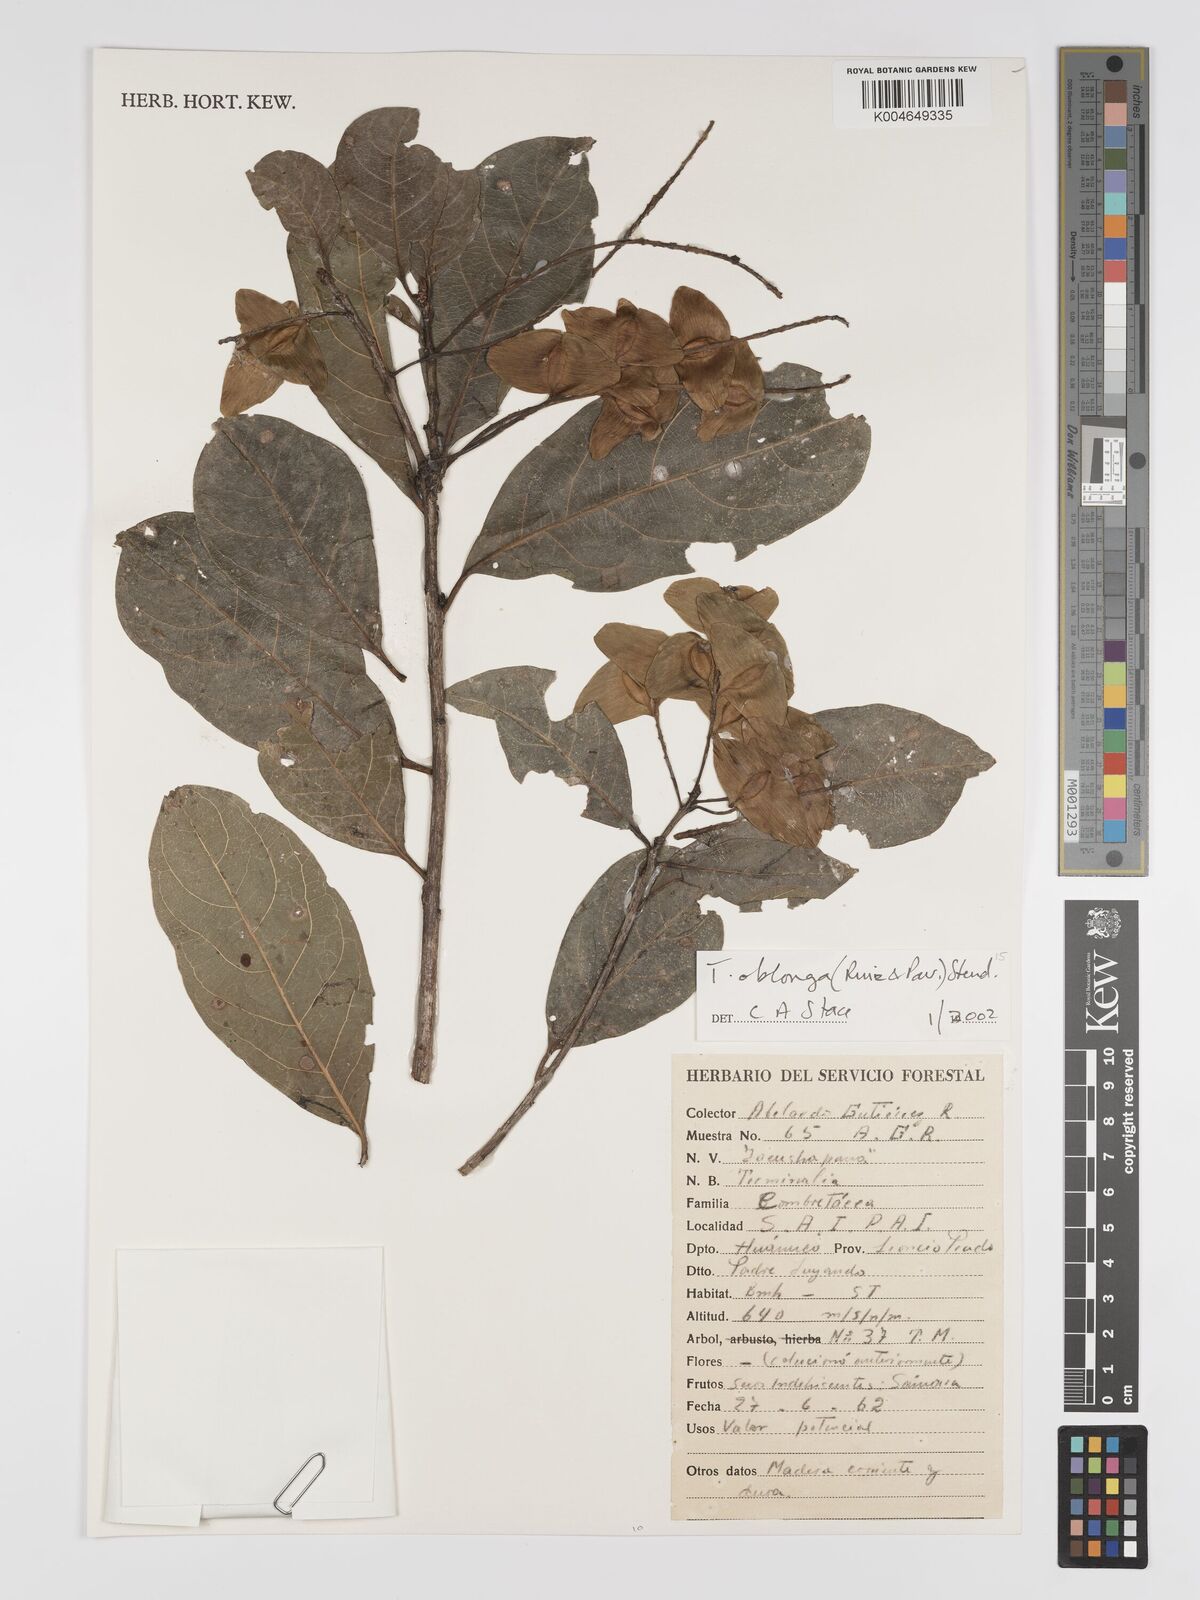 HERB. HORT. KEW.
ROYAL BOTANIC GARDENS KEW
K004649335
T. oblonga (Ruiz & Pav.) Steud.
DET. C A Stace 1/2002
HERBARIO DEL SERVICIO FORESTAL
Colector Abelardo Gutiérrez R
Muestra No. 65 A. G. R.
N. V.
N. B. Terminalia
Familia Combretácea
Localidad S. A. I. P. A. I.
Dpto. Huánuco Prov. Leoncio Prado
Dtto. Padre Luyando
Habitat. Bmh - ST
Altitud. 640 m/s/n/m.
Arbol, arbusto, hierba Nº 37 T. M.
Flores - ( anteriormente)
Frutos secos indehicentes: Sámara
Fecha 27 . 6 . 62
Usos Valor potencial
Otros datos Madera corriente y
dura.
10
inches
centimetres
D50 Illuminant, 2 degree observer
Density
Don Williams
M001293
Royal Botanic Gardens
Kew
0 1 2 3 4 5 6 7 8 9 10
cm
copyright reserved